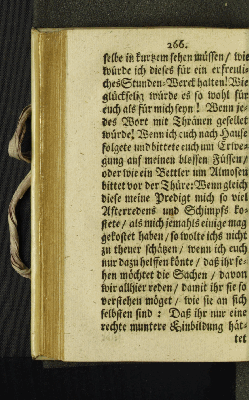 266.
selbe in kurtzem sehen müssen/ wie
würde ich dieses für ein erfreuli-
ches Stunden-Werck halten! Wie
glückselig würde es so wohl für
euch als für mich seyn! Wenn je-
des Wort mit Thränen gesellet
würde! Wenn ich euch nach Hause
folgete und bittete euch um Erwe-
gung auf meinen blossen Füssen/
oder wie ein Bettler um Almosen
bittet vor der Thüre: Wenn gleich
diese meine Predigt mich so viel
Affterredens und Schimpfs ko-
stete/ als mich jemahls einige mag
gekostet haben/ so wolte ichs nicht
zu theuer schätzen/ wenn ich euch
nur dazu helffen könte/ daß ihr se-
hen möchtet die Sachen/ davon
wir allhier reden/ damit ihr sie so
verstehen möget/ wie sie an sich
selbsten sind: Daß ihr nur eine
rechte muntere Einbildung hät-
tet